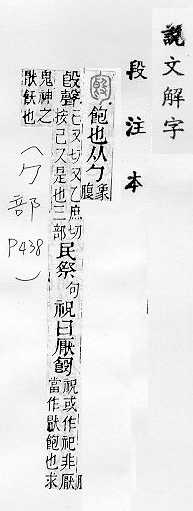 說文解字
段注本
飽也从勹
象
腹
𣪘聲
己又切又乙庶切
按己又是也三部
民祭
句
祝曰厭
祝或作祀非厭
當作猒飽也求
鬼神之
猒飫也
(勹部 P438)